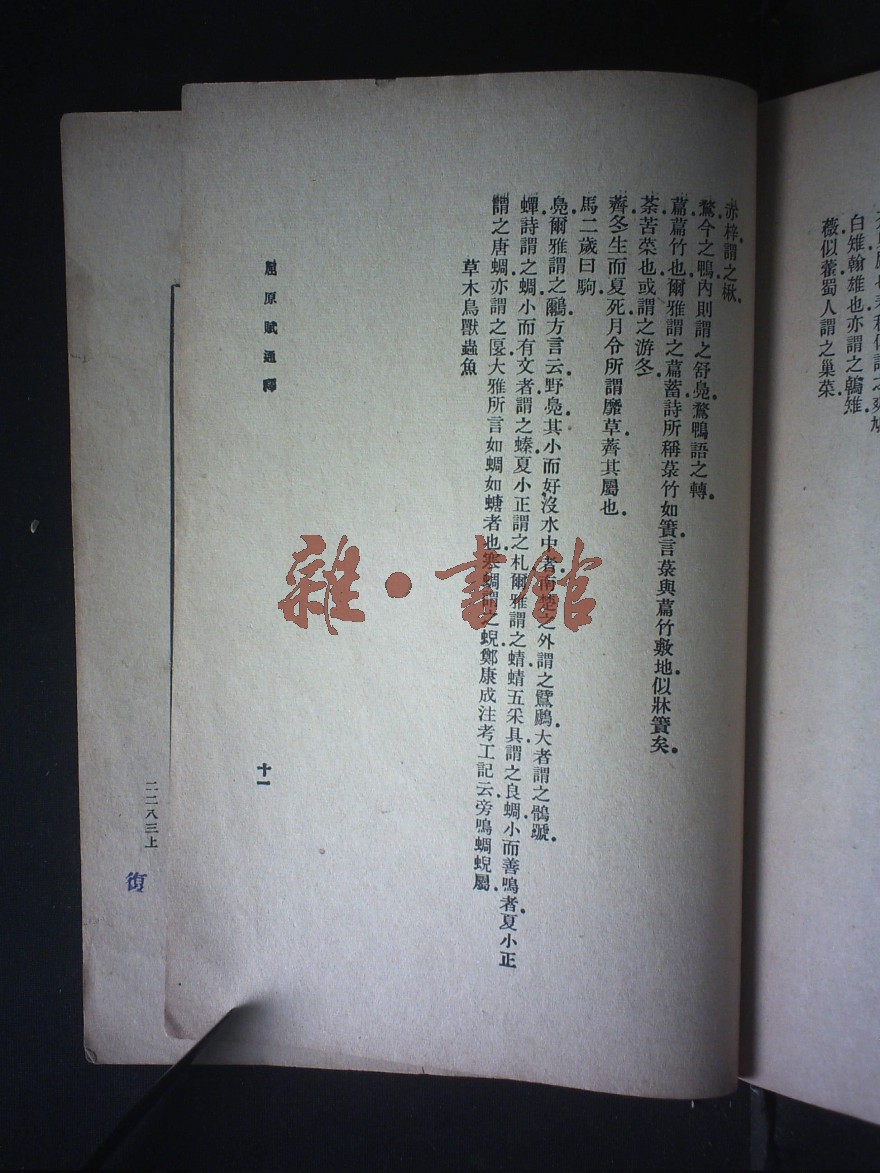 白雉翰雄也亦謂之鶾雉.
薇似藿蜀人謂之巢菜.
赤梓謂之楸.
鶩今之鴨.內則謂之舒鳧.鶩鴨語之轉.
萹萹竹也.爾雅謂之萹蓄.詩所稱菉竹如簀.言菉與萹竹敷地似牀簀矣.
荼苦菜也.或謂之游冬.
薺冬生而夏死.月令所謂靡草.薺其屬也.
馬二歲曰駒.
鳧爾雅謂之鸍.方言云.野鳧.其小而好沒水中者.南楚之外謂之鷿鷉.大者謂之鶻蹏.
蟬詩謂之蜩.小而有文者.謂之螓.夏小正謂之札.爾雅謂之蜻蜻.五采具.謂之良蜩.小而善鳴者.夏小正
謂之唐蜩.亦謂之匽.大雅所言如蜩如螗者也.寒蜩謂之蜺.鄭康成注考工記云.旁鳴蜩蜺屬.
草木鳥獸蟲魚
屈原賦通釋
十一
二二八三上
復
雜·書館